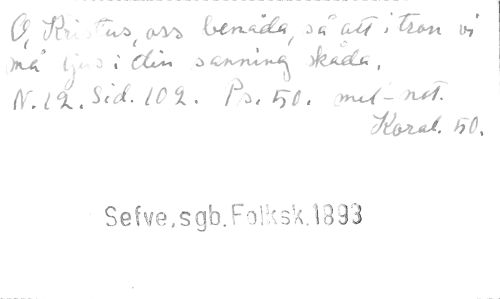 O, Kristus, oss benåda, så att i tron vi
må ljus i din sanning skåda.
N. 12. Sid. 102. Ps. 50. mel-not.
Koral. 50.
Sefve, sgb. Folksk. 1893